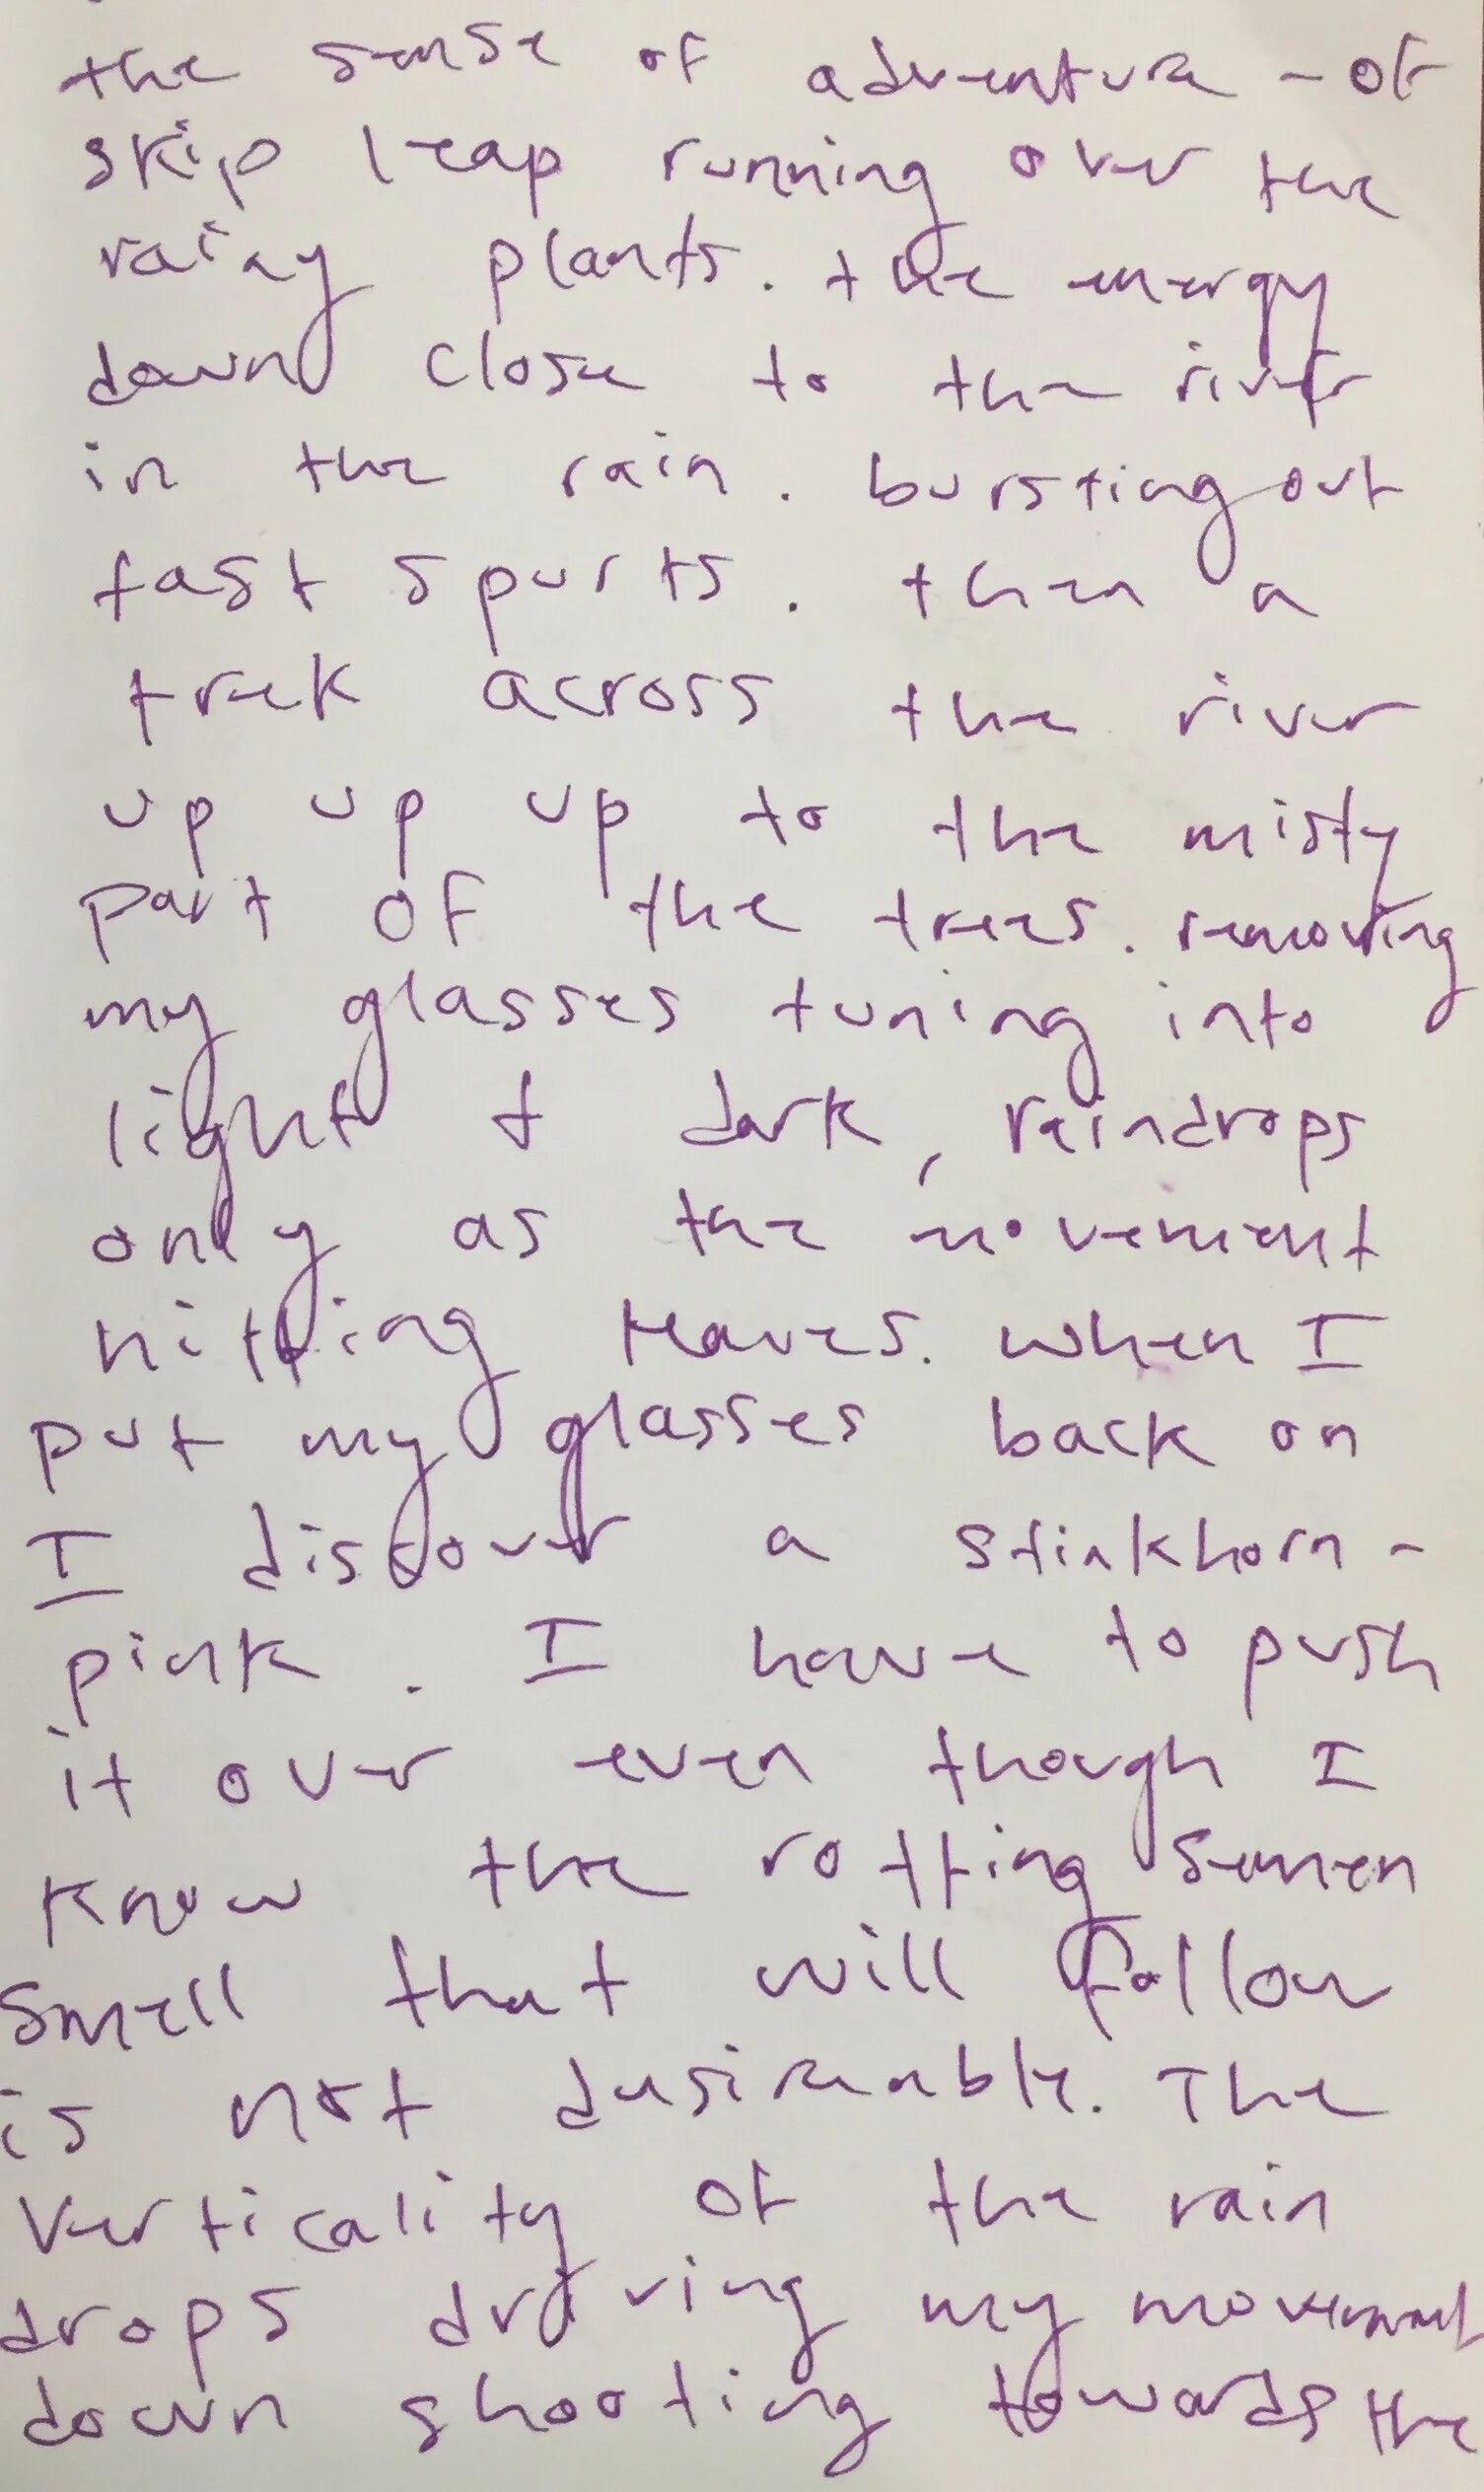 the sense of adventure - of
skip leap running over the
rainy plants. the energy
down close to the river
in the rain. bursting out
fast spurts. then a
trek across the river
up up up to the misty
part of the trees. removing
my glasses tuning into
light & dark, raindrops
only as the movement
hitting leaves. when I
put my glasses back on
I discover a stinkhorn -
pink. I have to push
it over even though I
know the rotting semen
smell that will follow
is not desireable. The
verticality of the rain
drops driving my movement
down shooting towards the